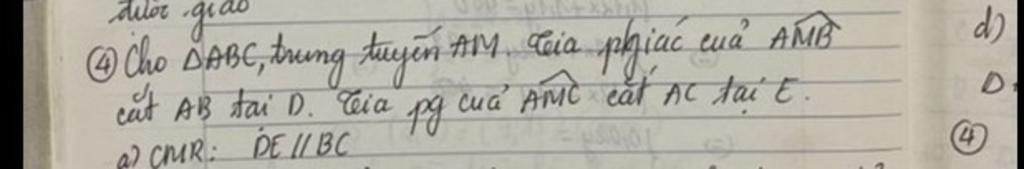 được giao
④ Cho ΔABC, trung tuyến AM. Tia phgiác cuả AMB
cắt AB tại D. Tia pg cuả AMC cắt AC tại E.
a) CMR: DE // BC
d)
D
④